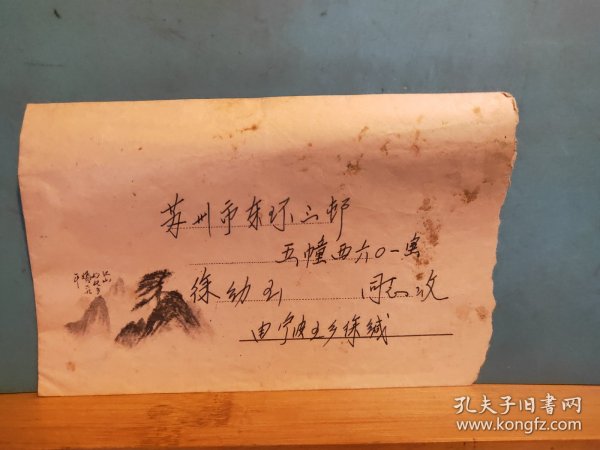 苏州市东环三邨
五幢西六〇一室
徐幼玉 同志收
由宁波王乡徐缄
江山
如此多
孔夫子旧书网
www.kongfz.com